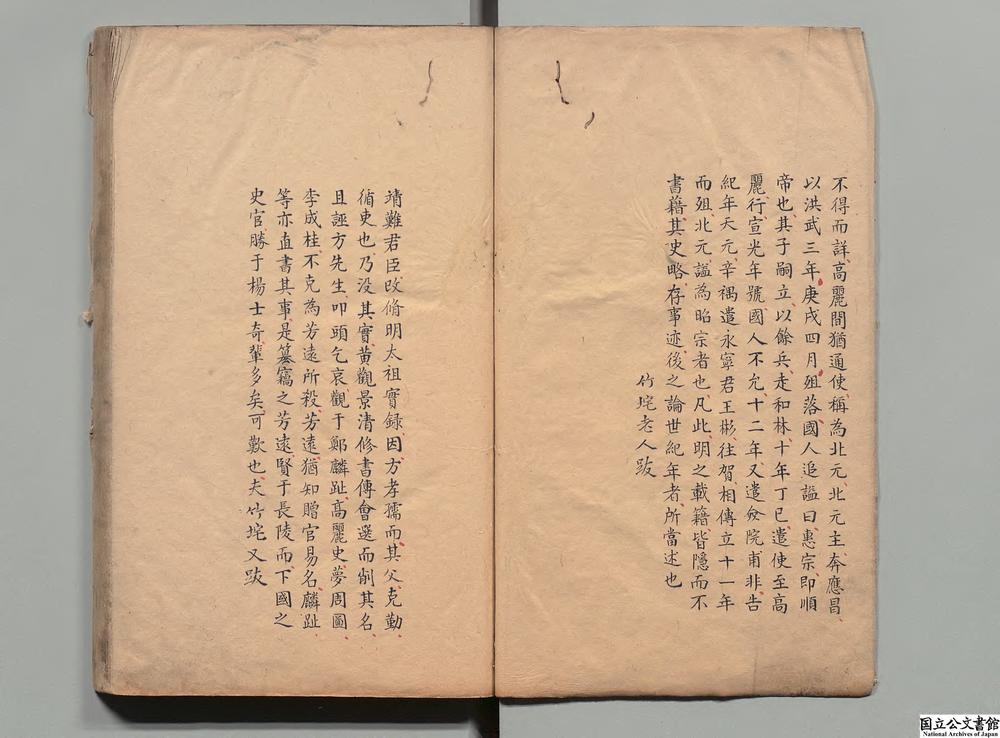 不得而詳高麗間猶通使稱為北元北元主奔應昌
以洪武三年庚戌四月殂落國人追謚曰惠宗即順
帝也其子嗣立以餘兵走和林十年丁巳遣使至高
麗行宣光年號國人不允十二年又遣僉院甫非告
紀年天元辛禑遣永寧君王彬往賀相傳立十一年
而殂北元謚為昭宗者也凡此明之載籍皆隱而不
書藉其史略存事迹後之論世紀年者所當述也
竹垞老人跋
靖難君臣改脩明太祖實録因方孝孺而其父克勤
循吏也乃没其實黄觀景清修書傳會選而削其名
且誣方先生叩頭乞哀觀于鄭麟趾高麗史夢周圖
李成桂不克為芳遠所殺芳遠猶知贈官易名麟趾
等亦直書其事是篡竊之芳遠賢于長陵而下國之
史官勝于楊士奇輩多矣可歎也夫竹垞又跋
国立公文書館
National Archives of Japan